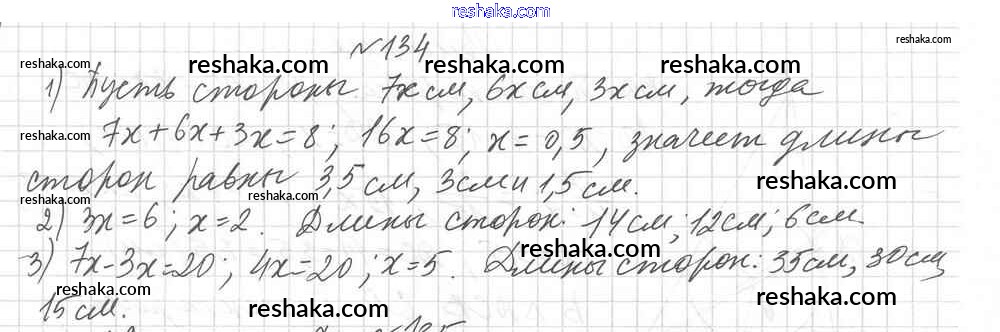 reshaka.com
№134
reshaka.com reshaka.com reshaka.com reshaka.com
1) Пусть стороны 7x см, 6x см, 3x см, тогда
7x+6x+3x=8; 16x=8; x=0,5, значит длины
reshaka.com reshaka.com reshaka.com
сторон равны 3,5 см, 3 см и 1,5 см.
reshaka.com reshaka.com
2) 3x=6; x=2. Длины сторон: 14 см; 12 см; 6 см
reshaka.com
3) 7x-3x=20; 4x=20; x=5. Длины сторон: 35 см, 30 см,
reshaka.com reshaka.com reshaka.com
15 см.